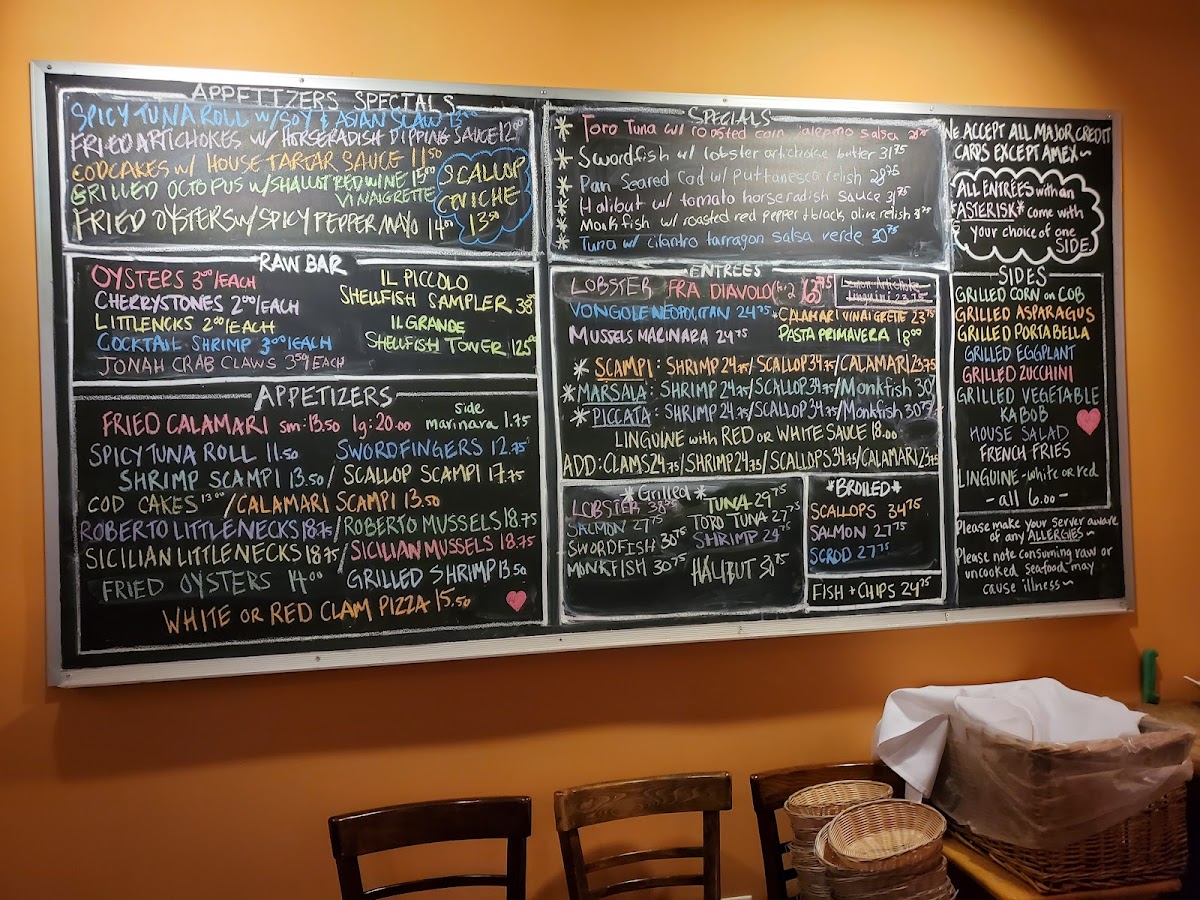 APPETIZERS SPECIALS
SPICY TUNA ROLL w/SOY & ASIAN SLAW 13
FRIED ARTICHOKES w/ HORSERADISH DIPPING SAUCE 12.00
CODCAKES w/ HOUSE TARTAR SAUCE 11.50
GRILLED OCTOPUS w/SHALLOT RED WINE 15.00
VINAIGRETTE
FRIED OYSTERS w/ SPICY PEPPER MAYO 14.00
SCALLOP
CEVICHE
13.50
RAW BAR
OYSTERS 3.00/EACH
CHERRYSTONES 2.00/EACH
LITTLENCKS 2.00/EACH
COCKTAIL SHRIMP 3.00/EACH
JONAH CRAB CLAWS 3.50/EACH
IL PICCOLO
SHELLFISH SAMPLER 38.00
IL GRANDE
SHELLFISH TOWER 125.00
APPETIZERS
FRIED CALAMARI sm:13.50 lg:20.00 side marinara 1.75
SPICY TUNA ROLL 11.50 SWORDFINGERS 12.75
SHRIMP SCAMPI 13.50/ SCALLOP SCAMPI 17.75
COD CAKES 13.00/CALAMARI SCAMPI 13.50
ROBERTO LITTLENECKS 18.75/ROBERTO MUSSELS 18.75
SICILIAN LITTLENECKS 18.75/SICILIAN MUSSELS 18.75
FRIED OYSTERS 14.00 GRILLED SHRIMP 13.50
WHITE OR RED CLAM PIZZA 15.50
SPECIALS
* Toro Tuna w/ roasted corn Jalepeno salsa
* Swordfish w/ lobster artichoke butter 31.75
* Pan Seared Cod w/ Puttanesca relish 28.75
* Halibut w/ tomato horseradish sauce 31.75
* Monkfish w/ roasted red pepper + black olive relish
* Tuna w/ cilantro tarragon salsa verde 30.75
ENTREES
LOBSTER FRA DIAVOLO (for 2) 63.75
Lemon Artichoke
Linguini 23.75
VONGOLE NEOPOLITAN 24.75 *CALAMARI VINAIGRETTE 23.75
MUSSELS MARINARA 24.75 PASTA PRIMAVERA 18.00
* SCAMPI: SHRIMP 24.75/SCALLOP 34.75/CALAMARI 23.75
* MARSALA: SHRIMP 24.75/SCALLOP 34.75/Monkfish 30
* PICCATA: SHRIMP 24.75/SCALLOP 34.75/Monkfish 30.75
LINGUINE with RED OR WHITE SAUCE 18.00
ADD: CLAMS 24.75/SHRIMP 24.75/SCALLOPS 34.75/CALAMARI 23.75
*Grilled*
LOBSTER 38.75
SALMON 27.75
SWORDFISH 30.75
MONKFISH 30.75
TUNA 29.75
TORO TUNA 27.75
SHRIMP 24.75
HALIBUT 30.75
*BROILED*
SCALLOPS 34.75
SALMON 27.75
SCROD 27.75
FISH + CHIPS 24.75
WE ACCEPT ALL MAJOR CREDIT
CARDS EXCEPT AMEX~
ALL ENTRÉES with an
*ASTERISK* come with
your choice of one
SIDE.
SIDES
GRILLED CORN on COB
GRILLED ASPARAGUS
GRILLED PORTABELLA
GRILLED EGGPLANT
GRILLED ZUCCHINI
GRILLED VEGETABLE
KABOB
HOUSE SALAD
FRENCH FRIES
LINGUINE-white or red
- all 6.00 -
Please make your Server aware
of any ALLERGIES~
Please note consuming raw or
uncooked Seafood may
cause illness~